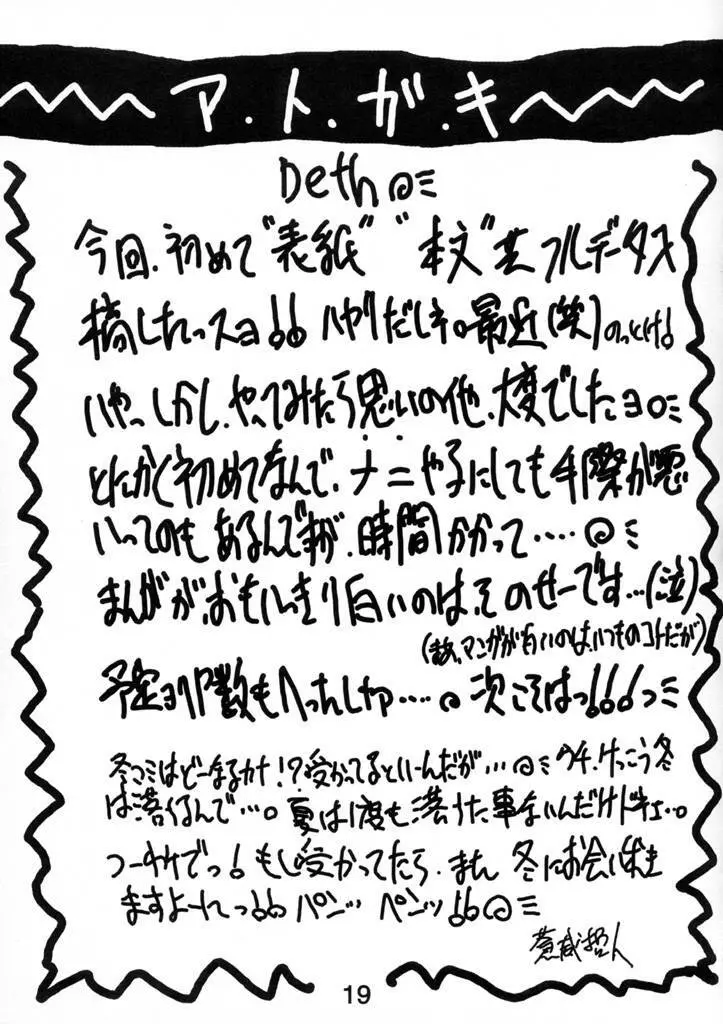 ア.ト.ガ.キ
Deth
今回、初めて"表紙" "本文"共フルデータ入
稿したっスヨ!! ハヤリだしネ。最近(笑)のっとけ!
いやっしかし、やってみたら思いの他、大変でしたヨ
とにかく初めてなんで、ナニやるにしても手際が悪
いってのもあるんですが、時間かかって....
まんがが、おもいっきり白いのは、そのせーです...(泣)
(まあ、マンガが白いのは、いつものコトだが)
予定ヨリP数もへっちゃったしゅ....。次こそはっ!!!っ
冬コミはどーなるカナ!?受かってるといーんだが... ウチ、けっこう冬
は落ちるんで...。夏は1度も落ちた事ないんだけドネェ..。
つーわけでっ! もし受かってたら、また 冬にお会いしま
ますよーれっ!! パンッ ペンッ!!
蒼威哲人
19